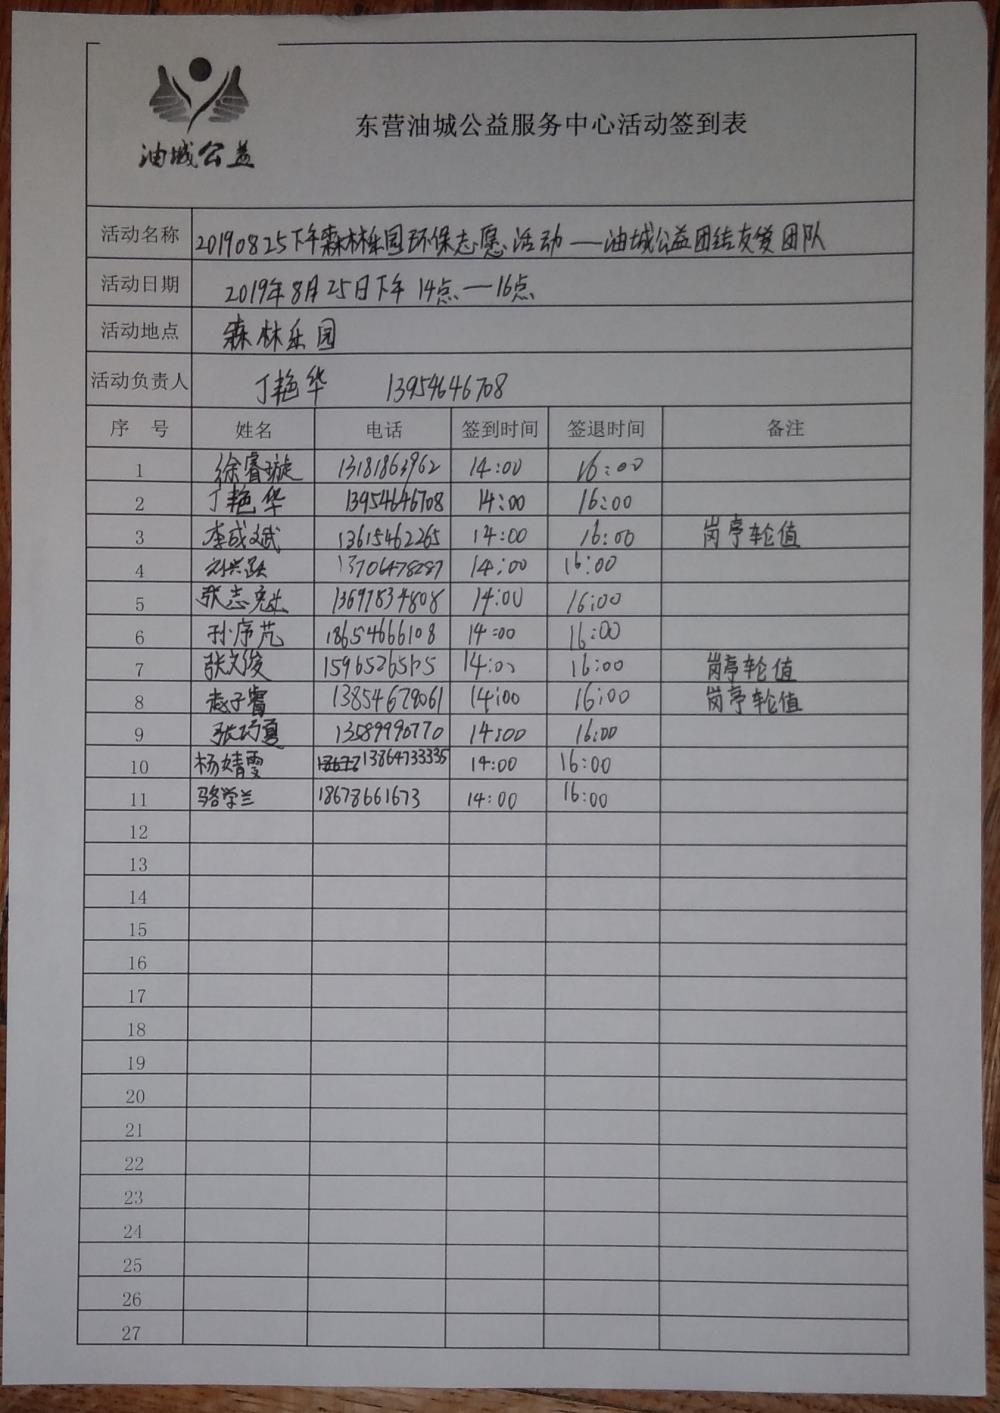 油城公益
东营油城公益服务中心活动签到表
活动名称 20190825下午森林乐园环保志愿活动——油城公益团结友爱团队
活动日期 2019年8月25日下午 14点—16点
活动地点 森林乐园
活动负责人 丁艳华 13954646708
序 号 姓名 电话 签到时间 签退时间 备注
1 徐睿璇 13181863962 14:00 16:00
2 丁艳华 13954646708 14:00 16:00
3 李成斌 13615462265 14:00 16:00 岗亭轮值
4 13706478287 14:00 16:00
5 张志 13697834808 14:00 16:00
6 孙序芃 18654666108 14:00 16:00
7 张文俊 14:00 16:00 岗亭轮值
8 赵子睿 13854679061 14:00 16:00 岗亭轮值
9 张巧夏 13589990770 14:00 16:00
10 杨婧雯 13864733335 14:00 16:00
11 骆学兰 18678661673 14:00 16:00
12
13
14
15
16
17
18
19
20
21
22
23
24
25
26
27